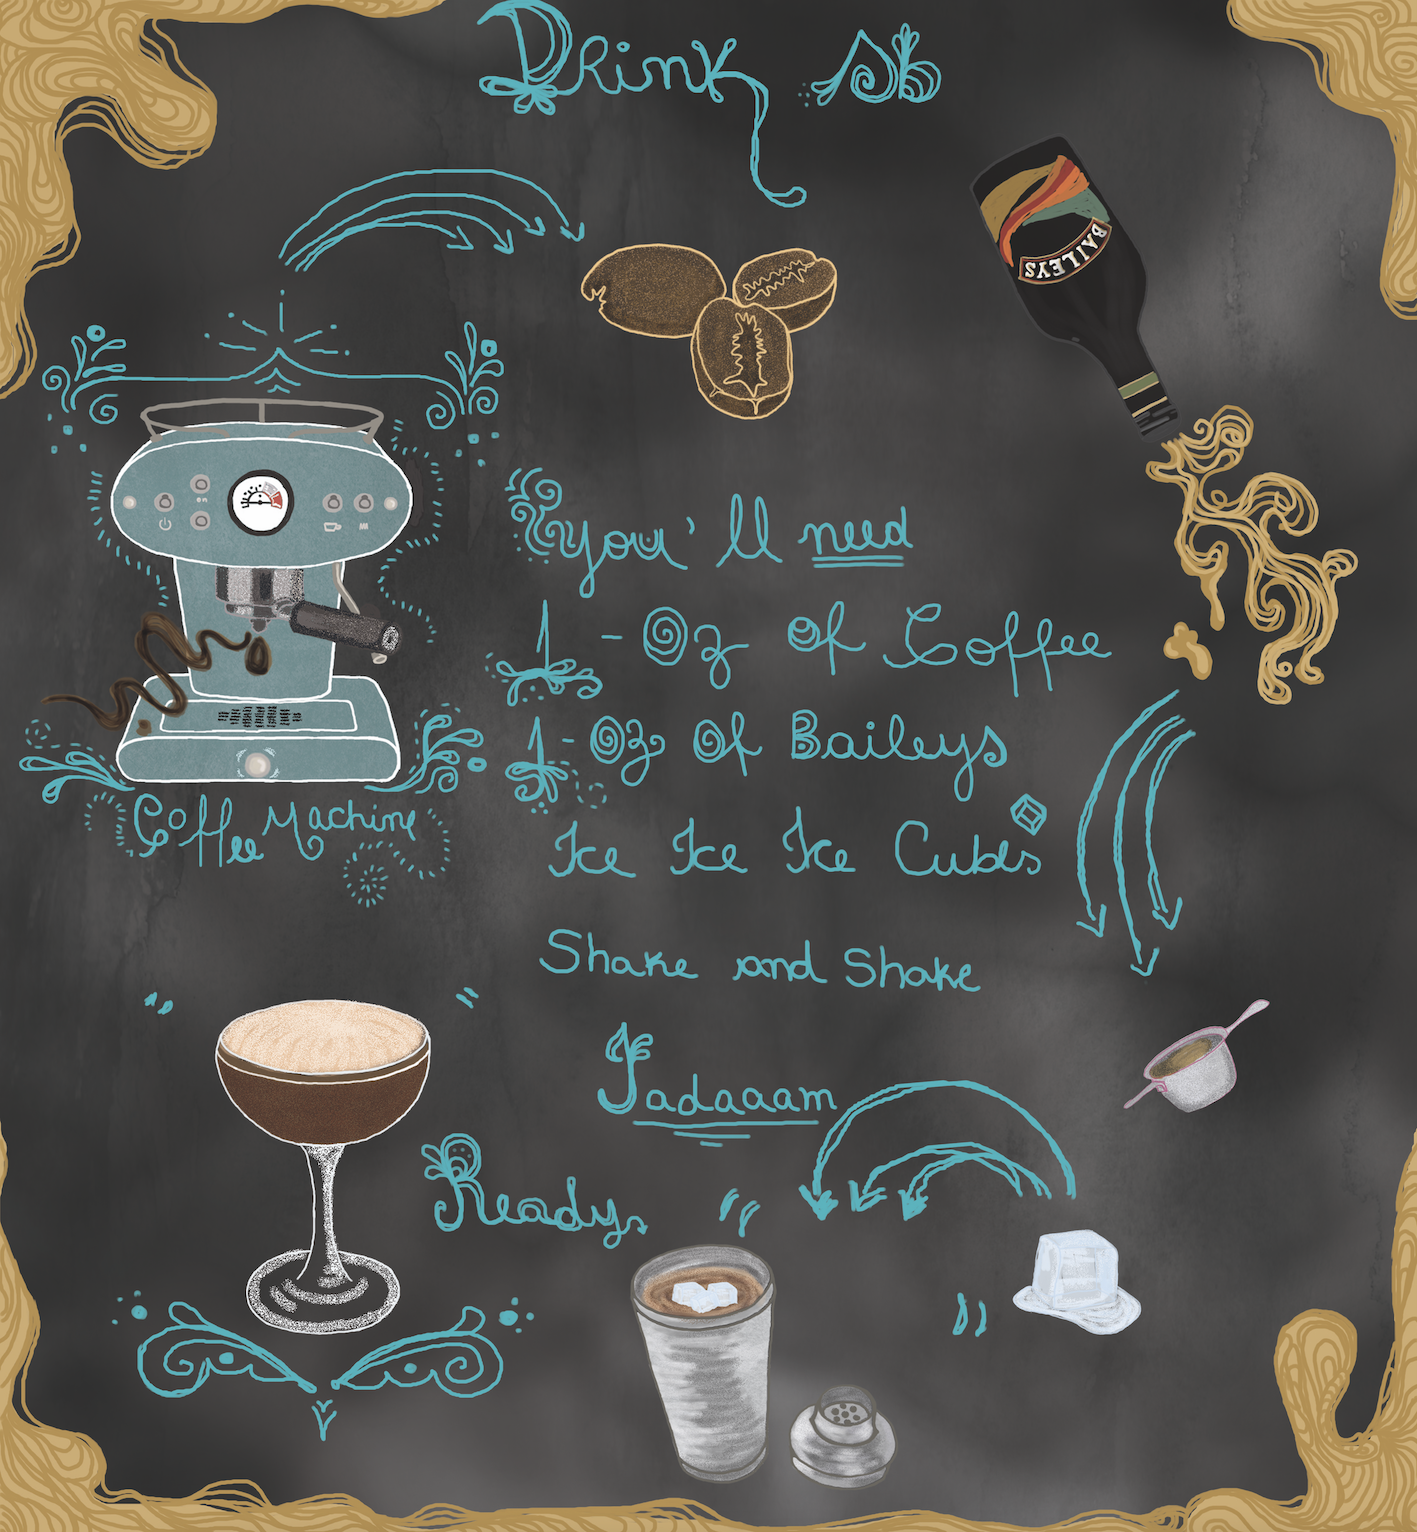 Drink
BAILEYS
on
you'll need
1 - Oz of Coffee
1 - Oz Of Baileys
Ice Ice Ice Cubes
Coffee Machine
Shake and Shake
Tadaaam
Ready